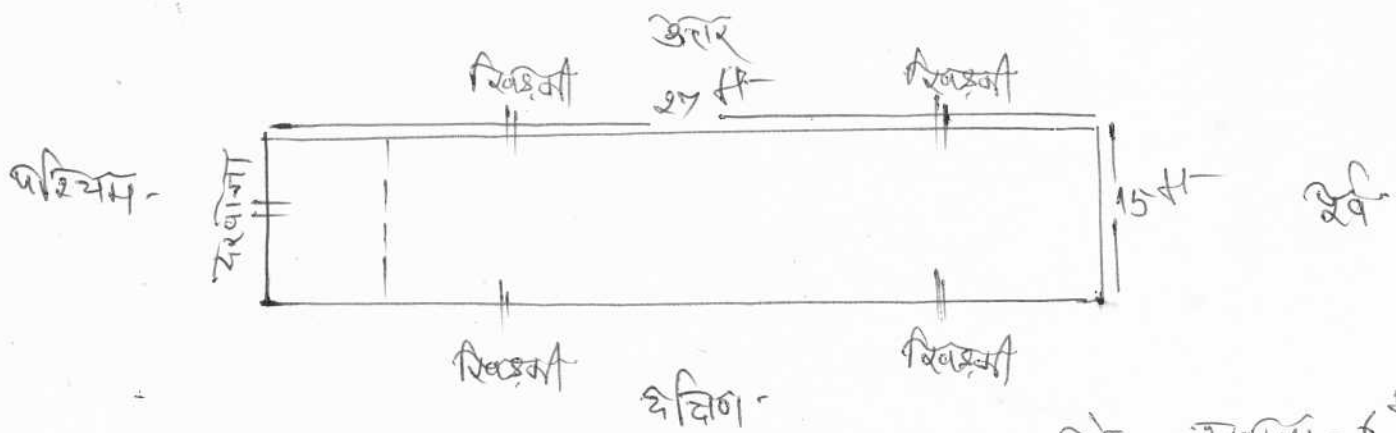 उत्तर
खिड़की
27 ft
खिड़की
पश्चिम -
दरवाजा
15 ft
पूर्व
खिड़की
खिड़की
दक्षिण -